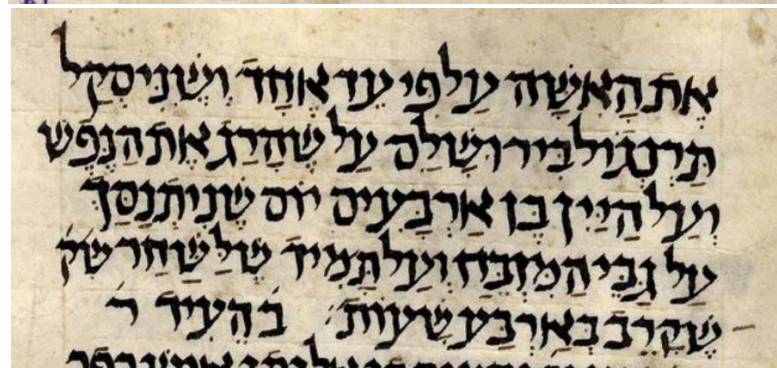 אֶת הָאִשָּׁה עַל פִּי עֵד אֶחָד וְשֶׁנִּיסְקַל
תַּרְנְגוֹל בִּירוּשָׁלִַם עַל שֶׁהָרַג אֶת הַנֶּפֶשׁ
וְעַל הַיַּיִן בֶּן אַרְבָּעִים יוֹם שֶׁנִּיתְנַסַּךְ
עַל גַּבֵּי הַמִּזְבֵּחַ וְעַל תָּמִיד שֶׁלַּשַּׁחַר שֶׁק
שֶׁקָּרַב בְּאַרְבַּע שָׁעוֹת בׄ הֵעִיד ר